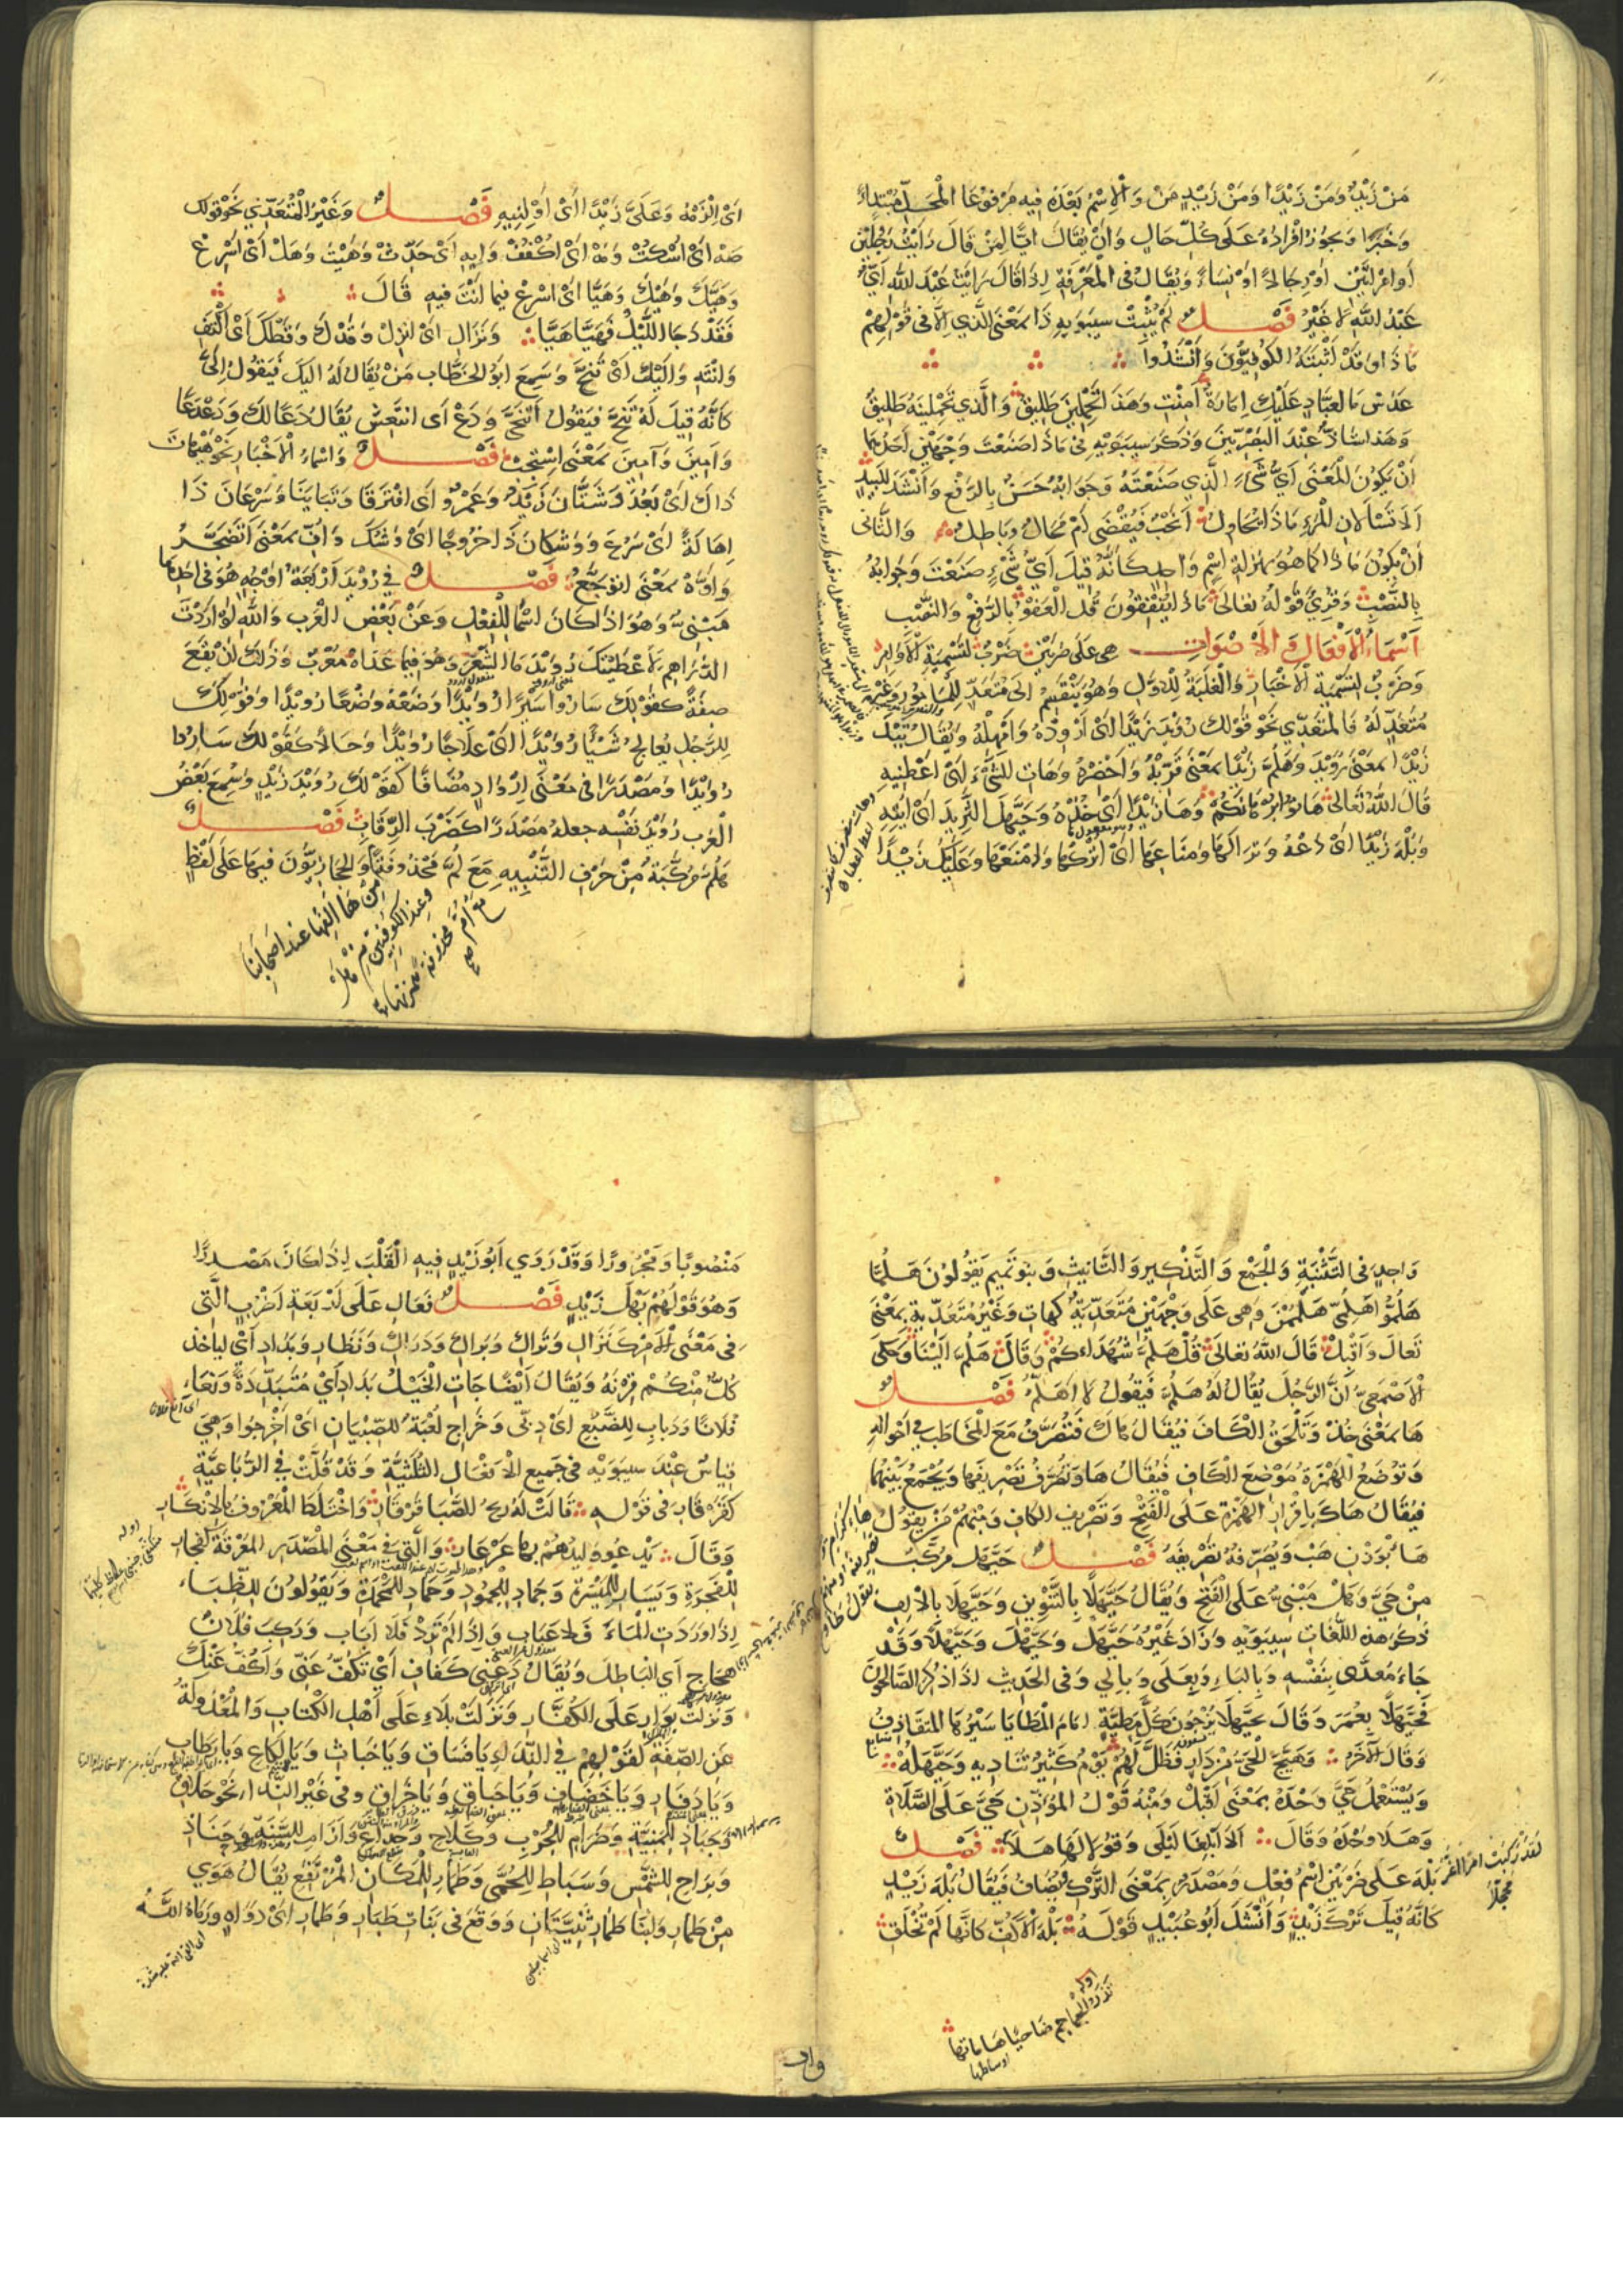 مَنْ زَيْدٌ وَمَنْ زَيْدًا وَمَنْ زَيْدٍ مَنْ وَالْاِسْمُ بَعْدَهُ فِيهِ مَرْفُوعَا الْمَحَلِّ مُبْتَدَاءً
وَخَبَرًا وَيَجُوزُ اِفْرَادُهُ عَلَى كُلِّ حَالٍ وَاَنْ يُقَالَ ايًّا لِمَنْ قَالَ رَايْتُ رَجُلَيْنِ
اَوِ امْرَاَتَيْنِ اَوْ رِجَالًا اَوْ نِسَاءً وَيُقَالُ فِى الْمَعْرِفَةِ اِذَا قَالَ رَايْتُ عَبْدَ اللهِ اَىٌّ
عَبْدُ اللهِ لَا غَيْرُ فَصْلٌ لَمْ يُثْبِتْ سِيبَوَيْهِ ذَا بِمَعْنَى الَّذِي اِلَّا فِى قَوْلِهِمْ
مَاذَا وَقَدْ اَثْبَتَهُ الكُوفِيُّونَ وَاَنْشَدُوا
عَدَسْ مَا لِعَبَّادٍ عَلَيْكِ اِمَارَةٌ اَمِنْتِ وَهَذَا تَحْمِلِينَ طَلِيقُ وَالَّذِي تَحْمِلِينَهُ طَلِيقٌ
وَهَذَا شَاذٌّ عِنْدَ الْبَصْرِيِّينَ وَذَكَرَ سِيبَوَيْهِ فِى مَاذَا صَنَعْتَ وَجْهَيْنِ اَحَدُهُمَا
اَنْ يَكُونَ الْمَعْنَى اَيُّ شَىْءٍ الَّذِي صَنَعْتَهُ وَجَوَابُهُ حَسَنٌ بِالرَّفْعِ وَاَنْشَدَ لِلَبِيدٍ
اَلَا تَسْاَلَانِ الْمَرْءَ مَاذَا يُحَاوِلُ اَنَحْبٌ فَيُقْضَى اَمْ ضَلَالٌ وَبَاطِلُ وَالثَّانِى
اَنْ يَكُونَ مَاذَا كَمَا هُوَ بِمَنْزِلَةِ اِسْمٍ وَاحِدٍ كَاَنَّهُ قِيلَ اَىَّ شَىْءٍ صَنَعْتَ وَجَوَابُهُ
بِالنَّصْبِ وَقُرِئَ قَوْلُهُ تَعَالَى مَاذَا يُنْفِقُونَ قُلِ الْعَفْوُ بِالرَّفْعِ وَالنَّصْبِ
اَسْمَاءُ الْاَفْعَالِ وَالْاَصْوَاتِ هِىَ عَلَى ضَرْبَيْنِ ضَرْبٌ لِتَسْمِيَةِ الْاَوَامِرِ
وَضَرْبٌ لِتَسْمِيَةِ الْاَخْبَارِ وَالْغَلَبَةُ لِلْاَوَّلِ وَهُوَ يَنْقَسِمُ اِلَى مُتَعَدٍّ لِلْمَامُورِ وَغَيْرِ
مُتَعَدٍّ لَهُ فَالْمُتَعَدِّي نَحْوُ قَوْلِكَ رُوَيْدَ زَيْدًا اَىْ اَرْوِدْهُ وَاَمْهِلْهُ وَيُقَالُ تَيْدَ
زَيْدًا بِمَعْنَى رُوَيْدَ وَهَلُمَّ زَيْدًا بِمَعْنَى قَرِّبْهُ وَاَحْضِرْهُ وَهَاتِ الشَّىْءَ اَىْ اَعْطِنِيهِ
قَالَ اللهُ تَعَالَى هَاتُوا بُرْهَانَكُمْ وَهَا زَيْدًا اَىْ خُذْهُ وَحَيَّهَلَ الثَّرِيدَ اَىْ ايتِهِ
وَبَلْهَ زَيْدًا اَىْ دَعْهُ وَتَرَاكِهَا وَمَنَاعِهَا اَىْ اتْرُكْهَا وَامْنَعْهَا وَعَلَيْكَ زَيْدًا
اَىْ اِلْزَمْهُ وَعَلَىَّ زَيْدًا اَىْ اَوْلِنِيهِ فَصْلٌ وَغَيْرُ الْمُتَعَدِّي نَحْوُ قَوْلِكَ
صَهْ اَىْ اُسْكُتْ وَمَهْ اَىْ اُكْفُفْ وَاِيهِ اَىْ حَدِّثْ وَهَيْتَ وَهَلْ اَىْ اَسْرِعْ
وَهَيَّكَ وَهَيْكَ وَهَيَّا اَىْ اَسْرِعْ فِيمَا اَنْتَ فِيهِ قَالَ
فَقَدْ دَجَا اللَّيْلُ فَهَيَّا هَيَّا وَنَزَالِ اَىْ اِنْزِلْ وَقَدْكَ وَقَطْكَ اَىْ اِكْتَفِ
وَانْتَهِ وَاِلَيْكَ اَىْ تَنَحَّ وَسَمِعَ اَبُو الْخَطَّابِ مَنْ يُقَالُ لَهُ اِلَيْكَ فَيَقُولُ اِلَىَّ
كَاَنَّهُ قِيلَ لَهُ تَنَحَّ فَيَقُولُ اَتَنَحَّى وَدَعْ اَىِ انْتَعِشْ يُقَالُ دَعًا لَكَ وَدَعْدَعًا
وَاَمِينَ وَآمِينَ بِمَعْنَى اسْتَجِبْ فَصْلٌ وَاَسْمَاءُ الْاَخْبَارِ نَحْوُ هَيْهَاتَ
ذَاكَ اَىْ بَعُدَ وَشَتَّانَ زَيْدٌ وَعَمْرٌو اَىِ افْتَرَقَا وَتَبَايَنَا وَسَرْعَانَ ذَا
اِهَالَةً اَىْ سَرُعَ وَوُشْكَانَ ذَا خُرُوجًا اَىْ وَشُكَ وَاُفٍّ بِمَعْنَى اَتَضَجَّرُ
وَاَوَّهْ بِمَعْنَى اَتَوَجَّعُ فَصْلٌ فِى رُوَيْدَ اَرْبَعَةُ اَوْجُهٍ هُوَ فِى اَحَدِهَا
مَبْنِىٌّ وَهُوَ اِذَا كَانَ اسْمًا لِلْفِعْلِ وَعَنْ بَعْضِ الْعَرَبِ وَاللهِ لَوْ اَرَدْتَ
الدَّرَاهِمَ لَاَعْطَيْتُكَ رُوَيْدَ مَا الشِّعْرَ وَهُوَ فِيمَا عَدَاهُ مُعْرَبٌ وَذَلِكَ اَنْ يَقَعَ
صِفَةً كَقَوْلِكَ سَارُوا سَيْرًا رُوَيْدًا وَضَعْهُ وَضْعًا رُوَيْدًا وَقَوْلِكَ
لِلرَّجُلِ يُعَالِجُ شَيْئًا رُوَيْدًا اَىْ عِلَاجًا رُوَيْدًا وَحَالًا كَقَوْلِكَ سَارُوا
رُوَيْدًا وَمَصْدَرًا فِى مَعْنَى اِرْوَادٍ مُضَافًا كَقَوْلِكَ رُوَيْدَ زَيْدٍ وَسُمِعَ بَعْضُ
الْعَرَبِ رُوَيْدَ نَفْسِهِ جَعَلَهُ مَصْدَرًا كَضَرْبَ الرِّقَابِ فَصْلٌ
هَلُمَّ مُرَكَّبَةٌ مِنْ حَرْفِ التَّنْبِيهِ مَعَ لُمَّ مَحْذُوفَةً وَالْحِجَازِيُّونَ فِيهَا عَلَى لَفْظٍ
مِنْ هَا اَلِفُهَا عِنْدَ اَصْحَابِنَا
وَعِنْدَ الْكُوفِيِّينَ مِنْ هَلْ
مَعَ اُمَّ مَحْذُوفَةً هَمْزَتُهَا
صح
وَاحِدٍ فِى التَّثْنِيَةِ وَالْجَمْعِ وَالتَّذْكِيرِ وَالتَّانِيثِ وَبَنُو تَمِيمٍ يَقُولُونَ هَلُمَّا
هَلُمُّوا هَلُمِّى هَلْمُمْنَ وَهِىَ عَلَى وَجْهَيْنِ مُتَعَدِّيَةٌ كَهَاتِ وَغَيْرُ مُتَعَدِّيَةٍ بِمَعْنَى
تَعَالَ وَاَقْبِلْ قَالَ اللهُ تَعَالَى قُلْ هَلُمَّ شُهَدَاءَكُمْ وَقَالَ هَلُمَّ اِلَيْنَا وَحَكَى
الْاَصْمَعِىُّ اَنَّ الرَّجُلَ يُقَالُ لَهُ هَلُمَّ فَيَقُولُ لَا اَهَلُمُّ فَصْلٌ
هَا بِمَعْنَى خُذْ وَتُلْحَقُ الْكَافَ فَيُقَالُ هَاكَ فَتُصَرَّفُ مَعَ الْمُخَاطَبِ فِى اَحْوَالِهِ
وَتُوضَعُ الْهَمْزَةُ مَوْضِعَ الْكَافِ فَيُقَالُ هَاءَ وَتُصَرَّفُ تَصْرِيفَهَا وَيُجْمَعُ بَيْنَهُمَا
فَيُقَالُ هَاءَكَ بِاِقْرَارِ الْهَمْزَةِ عَلَى الْفَتْحِ وَتَصْرِيفِ الْكَافِ وَمِنْهُمْ مَنْ يَقُولُ
هَأْ بِوَزْنِ هَبْ وَيُصَرِّفُهُ تَصْرِيفَهُ فَصْلٌ حَيَّهَل مُرَكَّبٌ
مِنْ حَىَّ وَهَلْ مَبْنِىٌّ عَلَى الْفَتْحِ وَيُقَالُ حَيَّهَلًا بِالتَّنْوِينِ وَحَيَّهَلَا بِالْاَلِفِ
ذَكَرَ هَذِهِ اللُّغَاتِ سِيبَوَيْهِ وَزَادَ غَيْرُهُ حَيَّهَلْ وَحَيَّهْلَ وَحَيَّهْلًا وَقَدْ
جَاءَ مُعَدًّى بِنَفْسِهِ وَبِالْبَاءِ وَبِعَلَى وَبِاِلَى وَفِى الْحَدِيثِ اِذَا ذُكِرَ الصَّالِحُونَ
فَحَيَّهَلًا بِعُمَرَ وَقَالَ بِحَيَّهَلَا يُزْجُونَ كُلَّ مَطِيَّةٍ اَمَامَ الْمَطَايَا سَيْرُهَا الْمُتَقَاذِفُ
وَقَالَ الْآخَرُ وَهَيَّجَ الْحَىَّ مِنْ دَارٍ فَظَلَّ لَهُمْ يَوْمٌ كَثِيرٌ تَنَادِيهِ وَحَيَّهَلُهُ
وَيُسْتَعْمَلُ حَىَّ وَحْدَهُ بِمَعْنَى اَقْبِلْ وَمِنْهُ قَوْلُ الْمُؤَذِّنِ حَىَّ عَلَى الصَّلَاةِ
وَهَلَا وَحْدَهُ وَقَالَ اَلَا اَبْلِغَا لَيْلَى وَقُولَا لَهَا هَلَا فَصْلٌ
بَلْهَ عَلَى ضَرْبَيْنِ اسْمُ فِعْلٍ وَمَصْدَرٌ بِمَعْنَى التَّرْكِ يُضَافُ فَيُقَالُ بَلْهَ زَيْدٍ
كَاَنَّهُ قِيلَ تَرْكَ زَيْدٍ وَاَنْشَدَ اَبُو عُبَيْدٍ قَوْلَهُ بَلْهَ الْاَكُفِّ كَاَنَّهَا لَمْ تُخْلَقِ
لَقَدْ رَكِبَتْ اَمْرًا اَغَرَّ مُحَجَّلَا
اوله
تَذَرُ الْجَمَاجِمَ ضَاحِيًا هَامَاتُهَا
مَنْصُوبًا وَمَجْرُورًا وَقَدْ رَوَى اَبُو زَيْدٍ فِيهِ الْقَلْبَ اِذَا كَانَ مَصْدَرًا
وَهُوَ قَوْلُهُمْ بَهْلَ زَيْدٍ فَصْلٌ فَعَالِ عَلَى اَرْبَعَةِ اَضْرُبٍ الَّتِى
فِى مَعْنَى الْاَمْرِ كَنَزَالِ وَتَرَاكِ وَبَرَاكِ وَدَرَاكِ وَنَظَارِ وَبَدَادِ اَىْ لِيَاخُذْ
كُلٌّ مِنْكُمْ قِرْنَهُ وَيُقَالُ اَيْضًا جَاءَتِ الْخَيْلُ بَدَادِ اَىْ مُتَبَدِّدَةً وَنَعَاءِ
فُلَانًا وَدَبَابِ لِلضَّبُعِ اَىْ دِبِّى وَخَرَاجِ لُعْبَةٌ لِلصِّبْيَانِ اَىْ اُخْرُجُوا وَهِىَ
قِيَاسٌ عِنْدَ سِيبَوَيْهِ فِى جَمِيعِ الْاَفْعَالِ الثُّلَاثِيَّةِ وَقَدْ قَلَّتْ فِى الرُّبَاعِيَّةِ
كَقَرْقَارِ فِى قَوْلِهِ قَالَتْ لَهُ رِيحُ الصَّبَا قَرْقَارِ وَاخْتَلَطَ الْمَعْرُوفُ بِالْاِنْكَارِ
وَقَالَ يَدْعُو وَلِيدُهُمْ بِهَا عَرْعَارِ وَالَّتِى فِى مَعْنَى الْمَصْدَرِ الْمَعْرِفَةِ كَفَجَارِ
لِلْفَجْرَةِ وَيَسَارِ لِلْمَيْسَرَةِ وَجَمَادِ لِلْجُمُودِ وَحَمَادِ لِلْمَحْمَدَةِ وَيَقُولُونَ لِلظِّبَاءِ
اِذَا وَرَدَتِ الْمَاءَ فَلَا عَبَابِ وَاِذَا لَمْ تَرِدْ فَلَا اَبَابِ وَرَكِبَ فُلَانٌ
هَجَاجِ اَىِ الْبَاطِلَ وَيُقَالُ دَعْنِى كَفَافِ اَىْ تَكُفُّ عَنِّى وَاَكُفُّ عَنْكَ
وَنَزَلَتْ بَوَارِ عَلَى الْكُفَّارِ وَنَزَلَتْ بَلَاءِ عَلَى اَهْلِ الْكِتَابِ وَالْمَعْدُولَةُ
عَنِ الصِّفَةِ كَقَوْلِهِمْ فِى النِّدَاءِ يَا فَسَاقِ وَيَا خَبَاثِ وَيَا لَكَاعِ وَيَا رَطَابِ
وَيَا دَفَارِ وَيَا خَضَافِ وَيَا حَبَاقِ وَيَا خَزَاقِ وَفِى غَيْرِ النِّدَاءِ نَحْوُ حَلَاقِ
وَجَبَاذِ لِلْمَنِيَّةِ وَصَرَامِ لِلْحَرْبِ وَكَلَاحِ وَجَدَاعِ وَاَزَامِ لِلسَّنَةِ وَحَنَاذِ
وَبَرَاحِ لِلشَّمْسِ وَسَبَاطِ لِلْحُمَّى وَطَمَارِ لِلْمَكَانِ الْمُرْتَفِعِ يُقَالُ هَوَى
مِنْ طَمَارِ وَابْنَا طَمَارِ ثَنِيَّتَانِ وَوَقَعَ فِى بَنَاتِ طَبَارِ وَطَمَارِ اَىْ دَوَاهٍ وَرَمَاهُ اللهُ